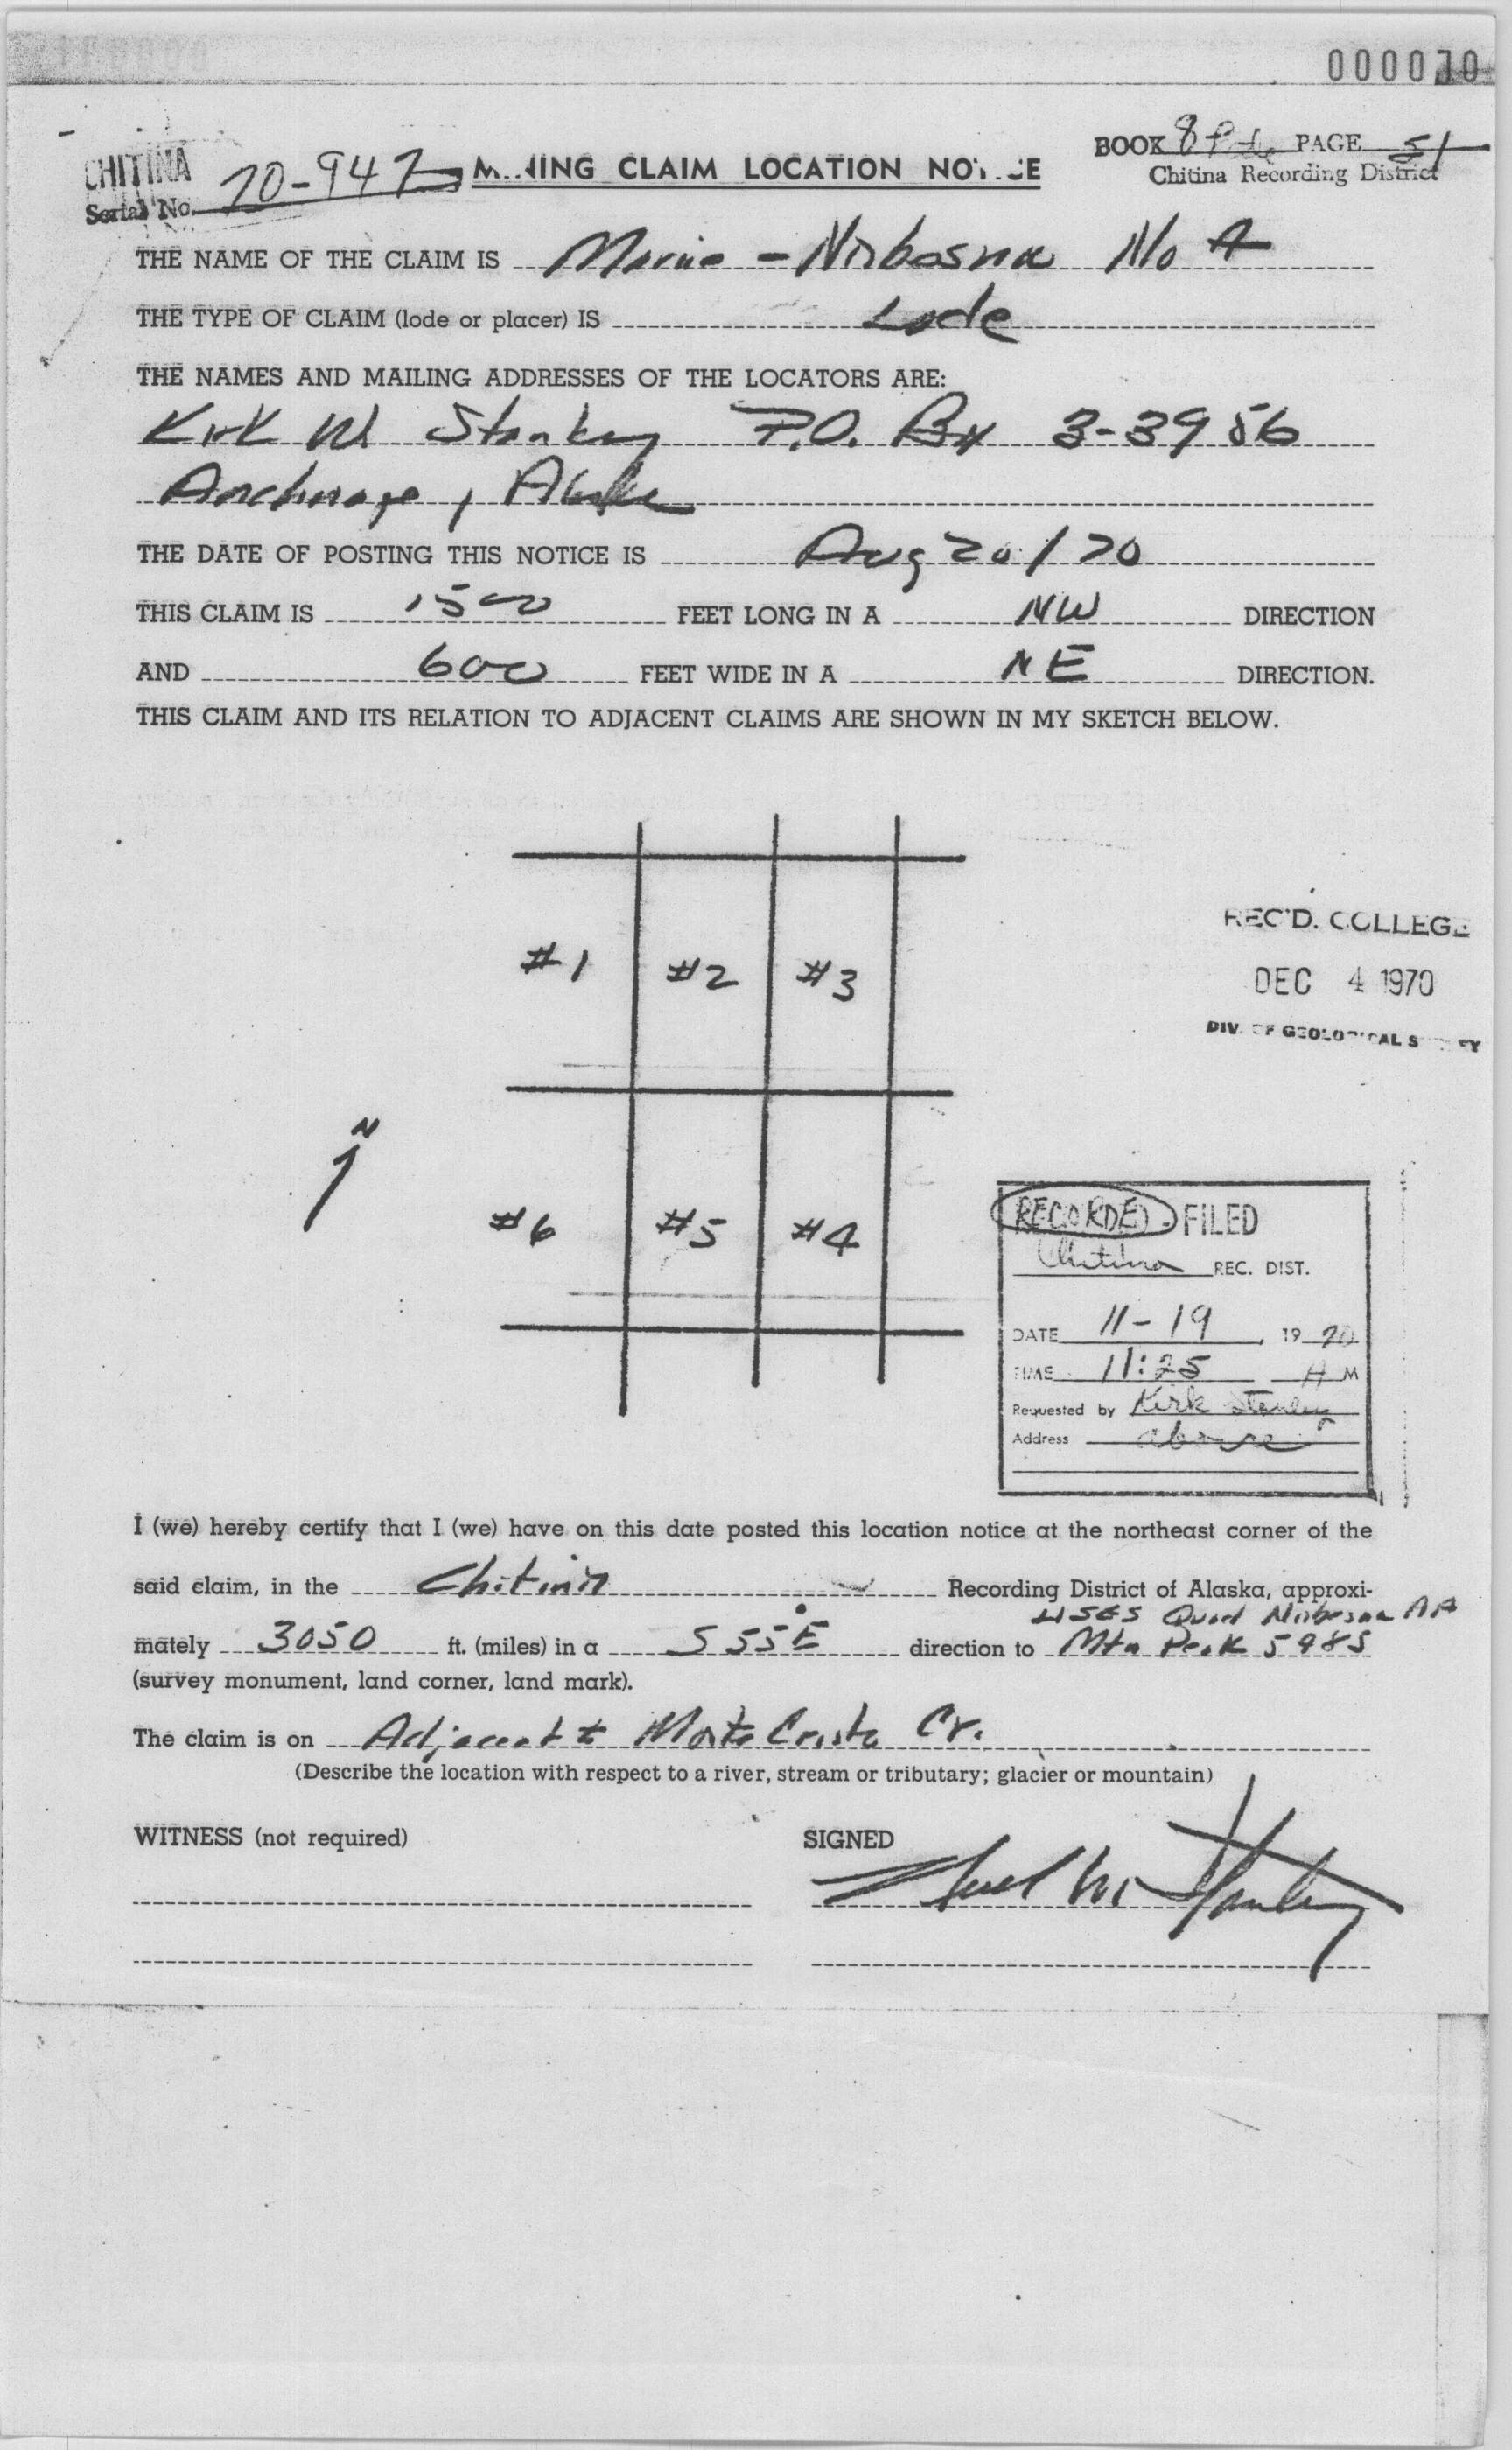 000010
CHITINA
Serial No. 70-947
MINING CLAIM LOCATION NOTICE
BOOK 8 PAGE 51
Chitina Recording District
THE NAME OF THE CLAIM IS Marie - Nabesna No 4
THE TYPE OF CLAIM (lode or placer) IS Lode
THE NAMES AND MAILING ADDRESSES OF THE LOCATORS ARE:
Kirk W Stanley P.O. Bx 3-3956
Anchorage, Alaska
THE DATE OF POSTING THIS NOTICE IS Aug 20/70
THIS CLAIM IS 1500 FEET LONG IN A NW DIRECTION
AND 600 FEET WIDE IN A NE DIRECTION.
THIS CLAIM AND ITS RELATION TO ADJACENT CLAIMS ARE SHOWN IN MY SKETCH BELOW.
#1 #2 #3
REC'D. COLLEGE
DEC 4 1970
DIV. OF GEOLOGICAL SURVEY
N
#6 #5 #4
RECORDED - FILED
Chitina REC. DIST.
DATE 11-19, 1970
TIME 11:25 A M
Requested by Kirk Stanley
Address above
I (we) hereby certify that I (we) have on this date posted this location notice at the northeast corner of the
said claim, in the Chitina Recording District of Alaska, approxi-
USGS Quad Nabesna A4
mately 3050 ft. (miles) in a S 55° E direction to Mtn Peak 5985
(survey monument, land corner, land mark).
The claim is on Adjacent to Monte Cristo Cr.
(Describe the location with respect to a river, stream or tributary; glacier or mountain)
WITNESS (not required)
SIGNED